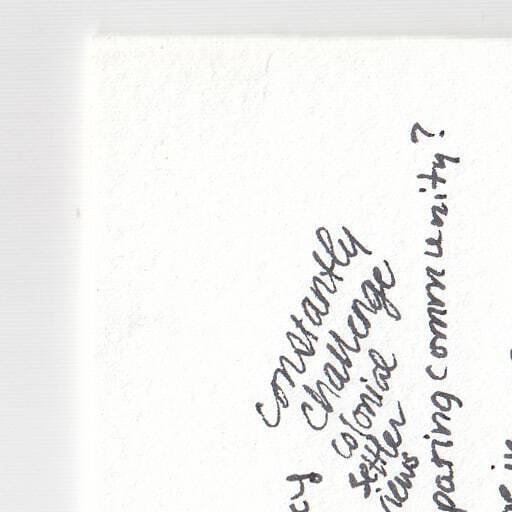 constantly
challenge
colonial
settler
views
cy
paring community?
in